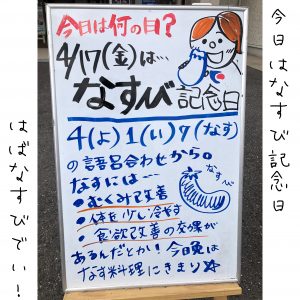 今日はなすび記念日
今日は何の日?
4/17(金)は…
なすび記念日
4(よ)1(い)7(なす)
の語呂合わせから。
なすには…
・むくみ改善
・体を少し冷やす
・食欲改善の効果が
あるんだとか！今日晩は
なす料理にきまり☆
なすべ
はぱなすびでい！